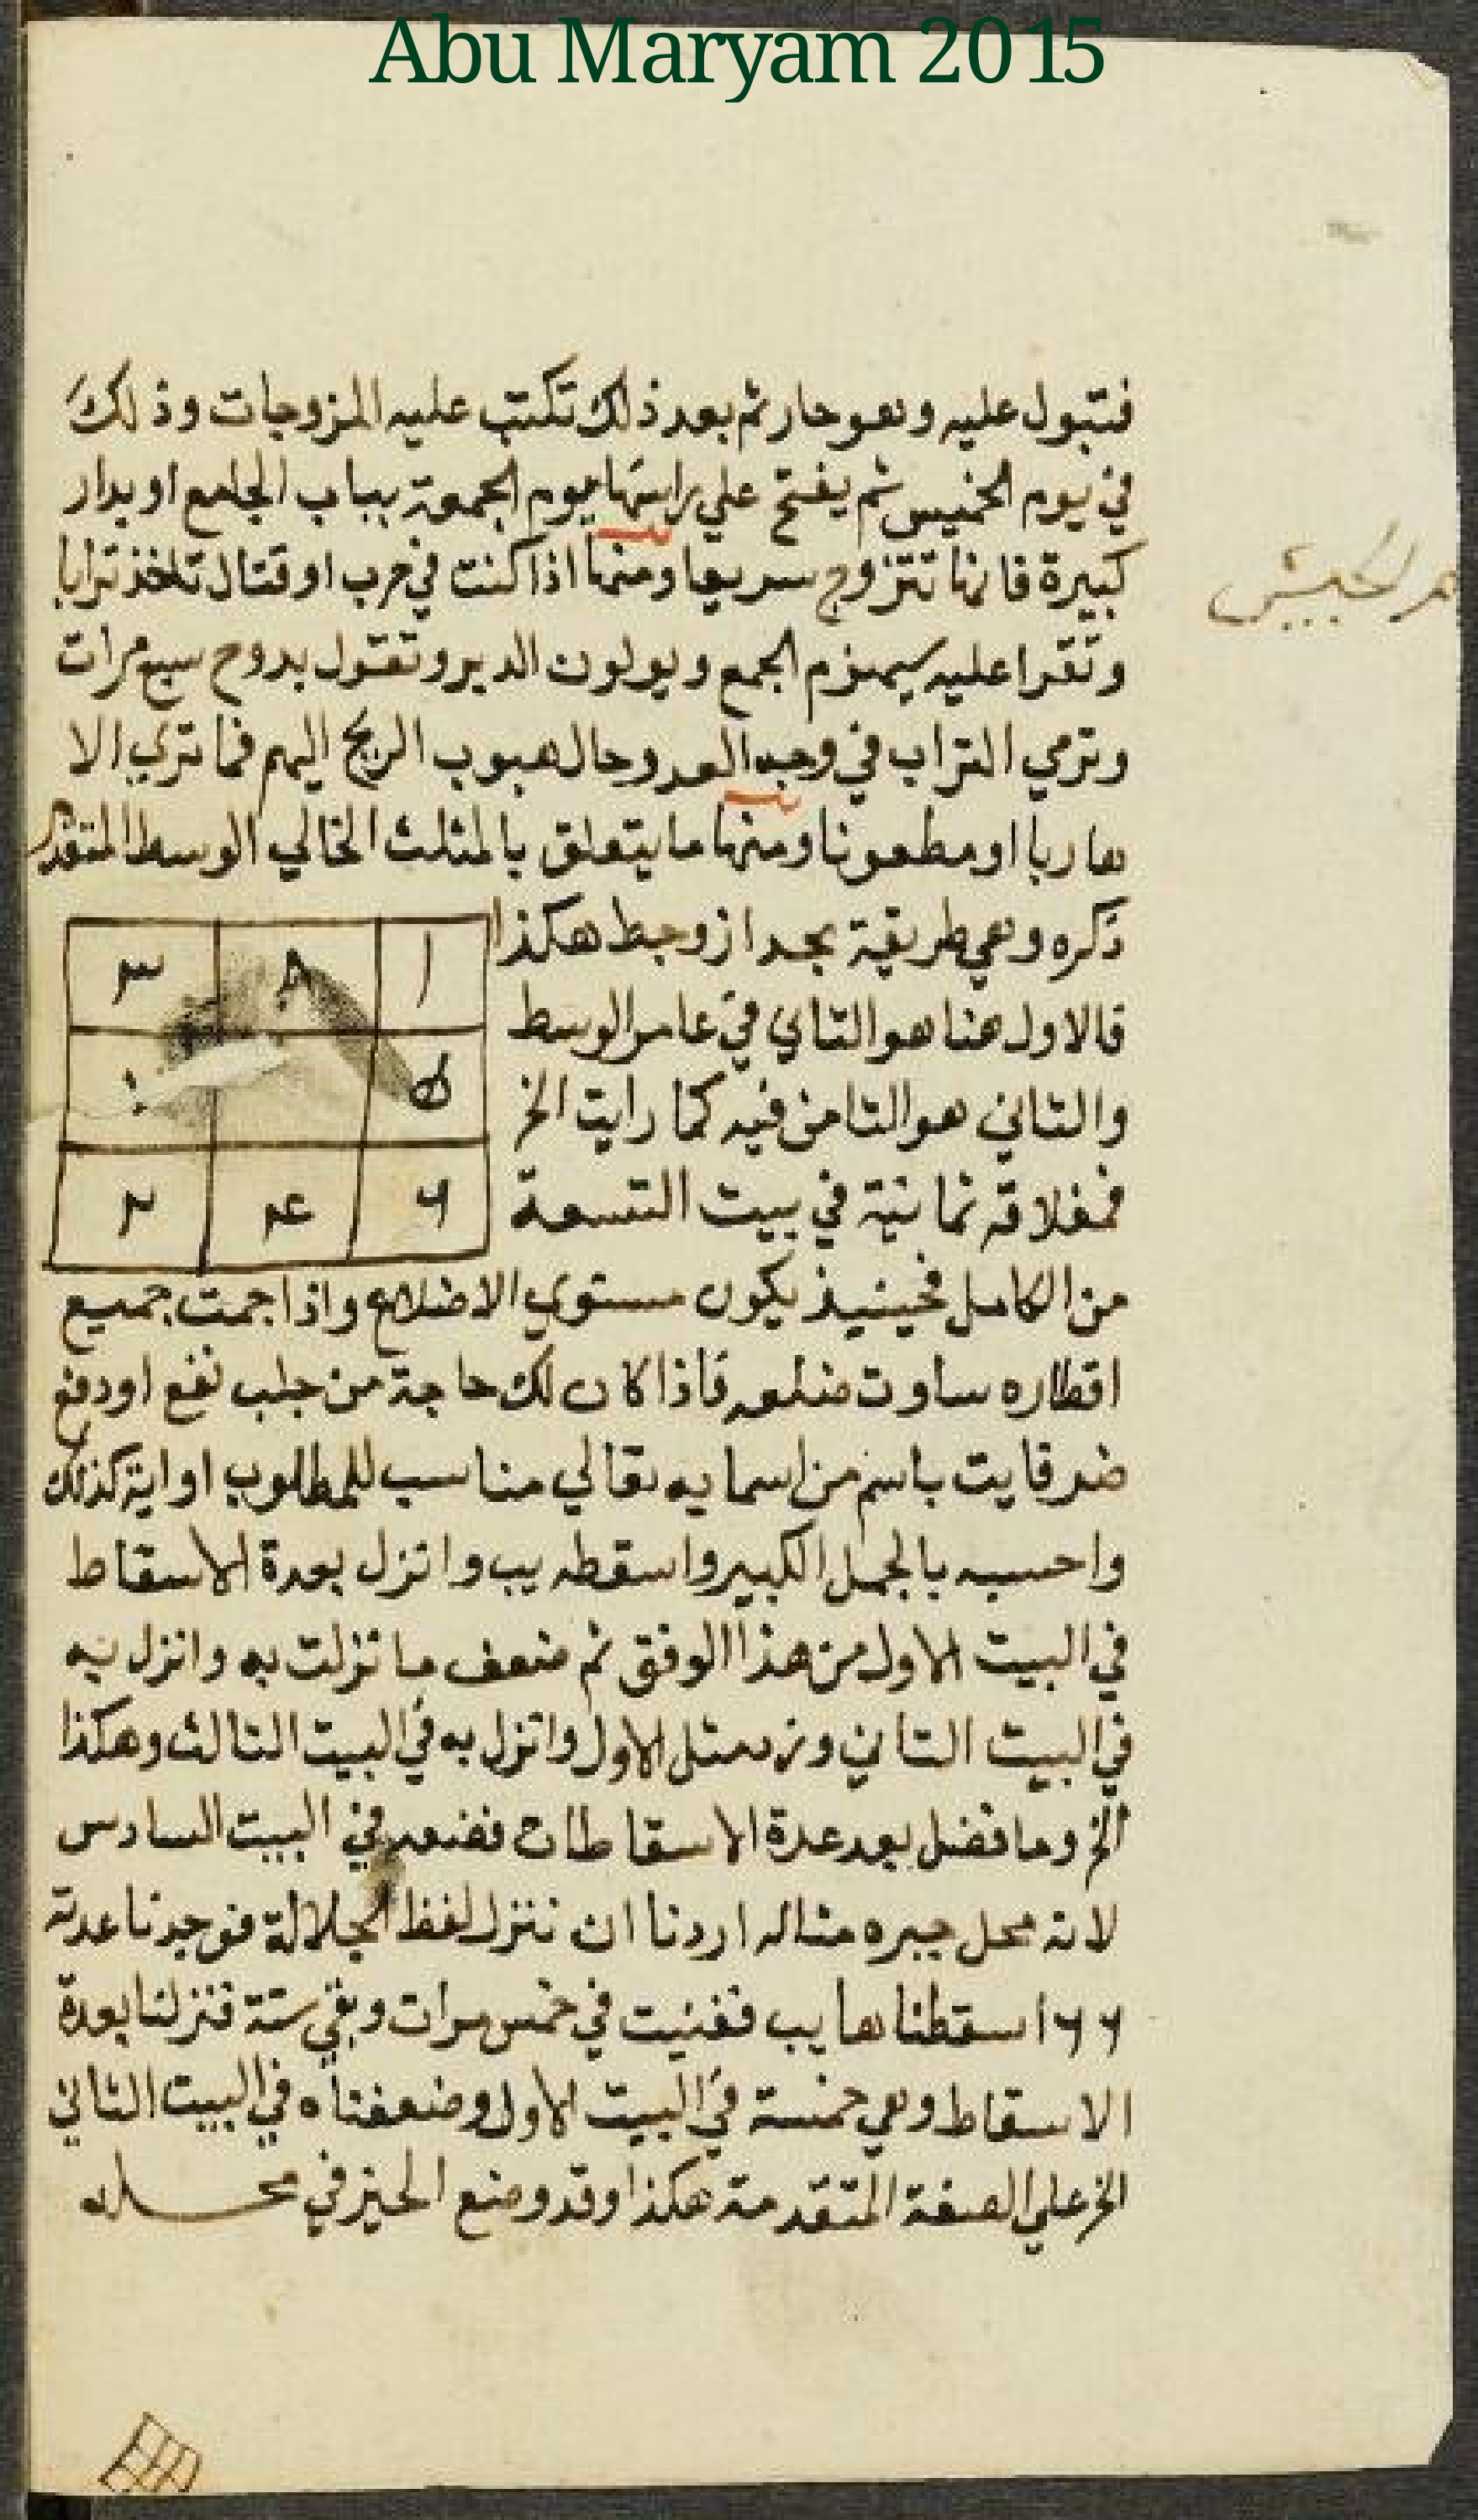 Abu Maryam 2015
فتبول عليه وهو حار ثم بعد ذلك تكتب عليه المزوجات وذلك
في يوم الخميس ثم يفتح علي راسها يوم الجمعة بباب الجامع او بدار
كبيرة فانها تتزوج سريعا ومنها اذا كنت في حرب او قتال تاخذ ترابا
وتقرا عليه سيهزم الجمع ويولون الدبر وتقول بدوح سبع مرات
وترمي التراب في وجه العدو حال هبوب الريح اليهم فما تري الا
هاربا او مطعونا ومنها ما يتعلق بالمثلث الخالي الوسط المتقدم
ذكره وهي طريقة بجد ازوحبط هكذا
١ ٨ ٣
٦ ٤ ٢
فالاول هنا هو الثاني في عامر الوسط
والثاني هو الثامن فيه كما رايت الخ
فمغلاقه ثمانية في بيت التسعة
من الكامل فحينيذ يكون مستوي الاضلاع واذا جمت جميع
اقطاره ساوت ضلعه فاذا كان لك حاجة من جلب نفع او دفع
ضر فايت باسم من اسمايه تعالي مناسب للمطلوب او اية كذلك
واحسبه بالجمل الكبير واسقطه يب وانزل بعدة الاسقاط
في البيت الاول من هذا الوفق ثم ضعف ما نزلت به وانزل به
في البيت الثاني وزد مثل الاول وانزل به في البيت الثالث وهكذا
الخ وما فضل بعد عدة الاسقاطات فضعه في البيت السادس
لانه محل جبره مثاله اردنا ان ننزل لفظ الجلالة فوجدنا عدته
٦٦ اسقطناها يب ففنيت في خمس مرات وبقي ستة فنزلنا بعدة
الاسقاط وهي خمسة في البيت الاول وضعفناه في البيت الثاني
الخ علي الصفة المتقدمة هكذا وقد وضع الجبر في محله